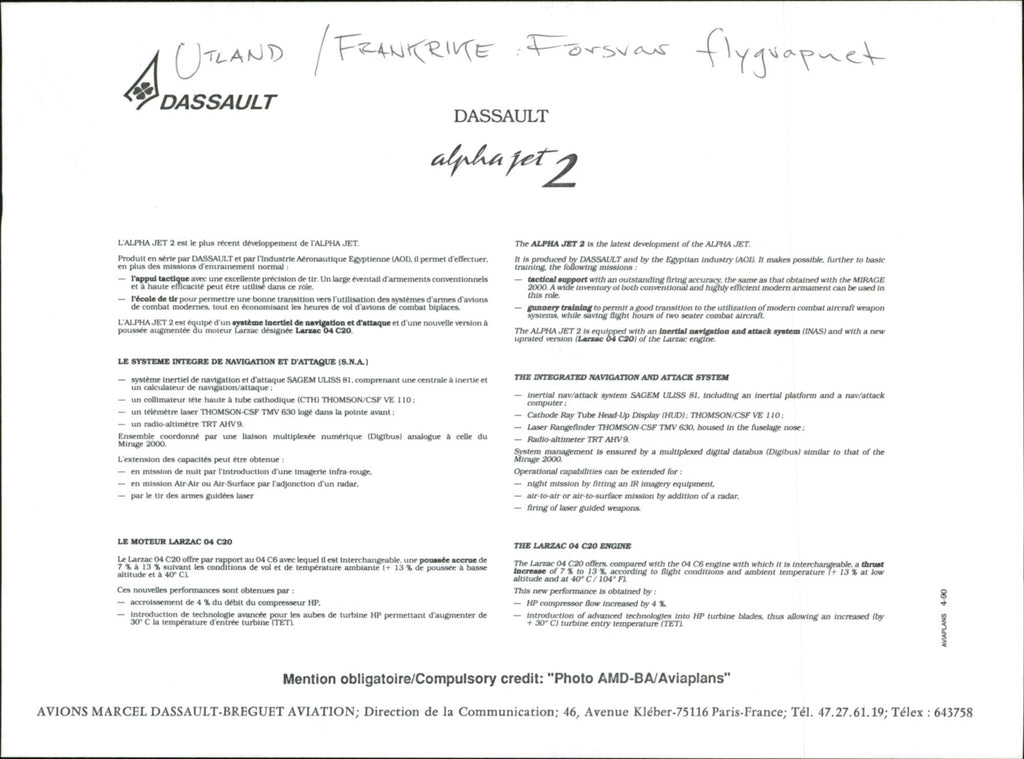 UTLAND / FRANKRIKE : Försvar flygvapnet
DASSAULT
DASSAULT
alpha jet 2
L'ALPHA JET 2 est le plus récent développement de l'ALPHA JET.
Produit en série par DASSAULT et par l'Industrie Aéronautique Egyptienne (AOI), il permet d'effectuer,
en plus des missions d'entrainement normal :
— l'appui tactique avec une excellente précision de tir. Un large éventail d'armements conventionnels
et à haute efficacité peut être utilisé dans ce rôle.
— l'école de tir pour permettre une bonne transition vers l'utilisation des systèmes d'armes d'avions
de combat modernes, tout en économisant les heures de vol d'avions de combat biplaces.
L'ALPHA JET 2 est équipé d'un système inertiel de navigation et d'attaque et d'une nouvelle version à
poussée augmentée du moteur Larzac désignée Larzac 04 C20.
LE SYSTEME INTEGRE DE NAVIGATION ET D'ATTAQUE (S.N.A.)
— système inertiel de navigation et d'attaque SAGEM ULISS 81, comprenant une centrale à inertie et
un calculateur de navigation/attaque ;
— un collimateur tête haute à tube cathodique (CTH) THOMSON/CSF VE 110 ;
— un télémètre laser THOMSON-CSF TMV 630 logé dans la pointe avant ;
— un radio-altimètre TRT AHV9.
Ensemble coordonné par une liaison multiplexée numérique (Digibus) analogue à celle du
Mirage 2000.
L'extension des capacités peut être obtenue :
— en mission de nuit par l'introduction d'une imagerie infra-rouge,
— en mission Air-Air ou Air-Surface par l'adjonction d'un radar,
— par le tir des armes guidées laser
LE MOTEUR LARZAC 04 C20
Le Larzac 04 C20 offre par rapport au 04 C6 avec lequel il est interchangeable, une poussée accrue de
7 % à 13 % suivant les conditions de vol et de température ambiante (+ 13 % de poussée à basse
altitude et à 40° C).
Ces nouvelles performances sont obtenues par :
— accroissement de 4 % du débit du compresseur HP,
— introduction de technologie avancée pour les aubes de turbine HP permettant d'augmenter de
30° C la température d'entrée turbine (TET).
The ALPHA JET 2 is the latest development of the ALPHA JET.
It is produced by DASSAULT and by the Egyptian industry (AOI). It makes possible, further to basic
training, the following missions :
— tactical support with an outstanding firing accuracy, the same as that obtained with the MIRAGE
2000. A wide inventory of both conventional and highly efficient modern armament can be used in
this role.
— gunnery training to permit a good transition to the utilization of modern combat aircraft weapon
systems, while saving flight hours of two seater combat aircraft.
The ALPHA JET 2 is equipped with an inertial navigation and attack system (INAS) and with a new
uprated version (Larzac 04 C20) of the Larzac engine.
THE INTEGRATED NAVIGATION AND ATTACK SYSTEM
— inertial nav/attack system SAGEM ULISS 81, including an inertial platform and a nav/attack
computer ;
— Cathode Ray Tube Head-Up Display (HUD); THOMSON/CSF VE 110 ;
— Laser Rangefinder THOMSON-CSF TMV 630, housed in the fuselage nose ;
— Radio-altimeter TRT AHV9.
System management is ensured by a multiplexed digital databus (Digibus) similar to that of the
Mirage 2000.
Operational capabilities can be extended for :
— night mission by fitting an IR imagery equipment,
— air-to-air or air-to-surface mission by addition of a radar,
— firing of laser guided weapons.
THE LARZAC 04 C20 ENGINE
The Larzac 04 C20 offers, compared with the 04 C6 engine with which it is interchangeable, a thrust
increase of 7 % to 13 %, according to flight conditions and ambient temperature (+ 13 % at low
altitude and at 40° C / 104° F).
This new performance is obtained by :
— HP compressor flow increased by 4 %,
— introduction of advanced technologies into HP turbine blades, thus allowing an increased (by
+ 30° C) turbine entry temperature (TET).
AVIAPLANS 4-90
Mention obligatoire/Compulsory credit: "Photo AMD-BA/Aviaplans"
AVIONS MARCEL DASSAULT-BREGUET AVIATION; Direction de la Communication; 46, Avenue Kléber-75116 Paris-France; Tél. 47.27.61.19; Télex : 643758